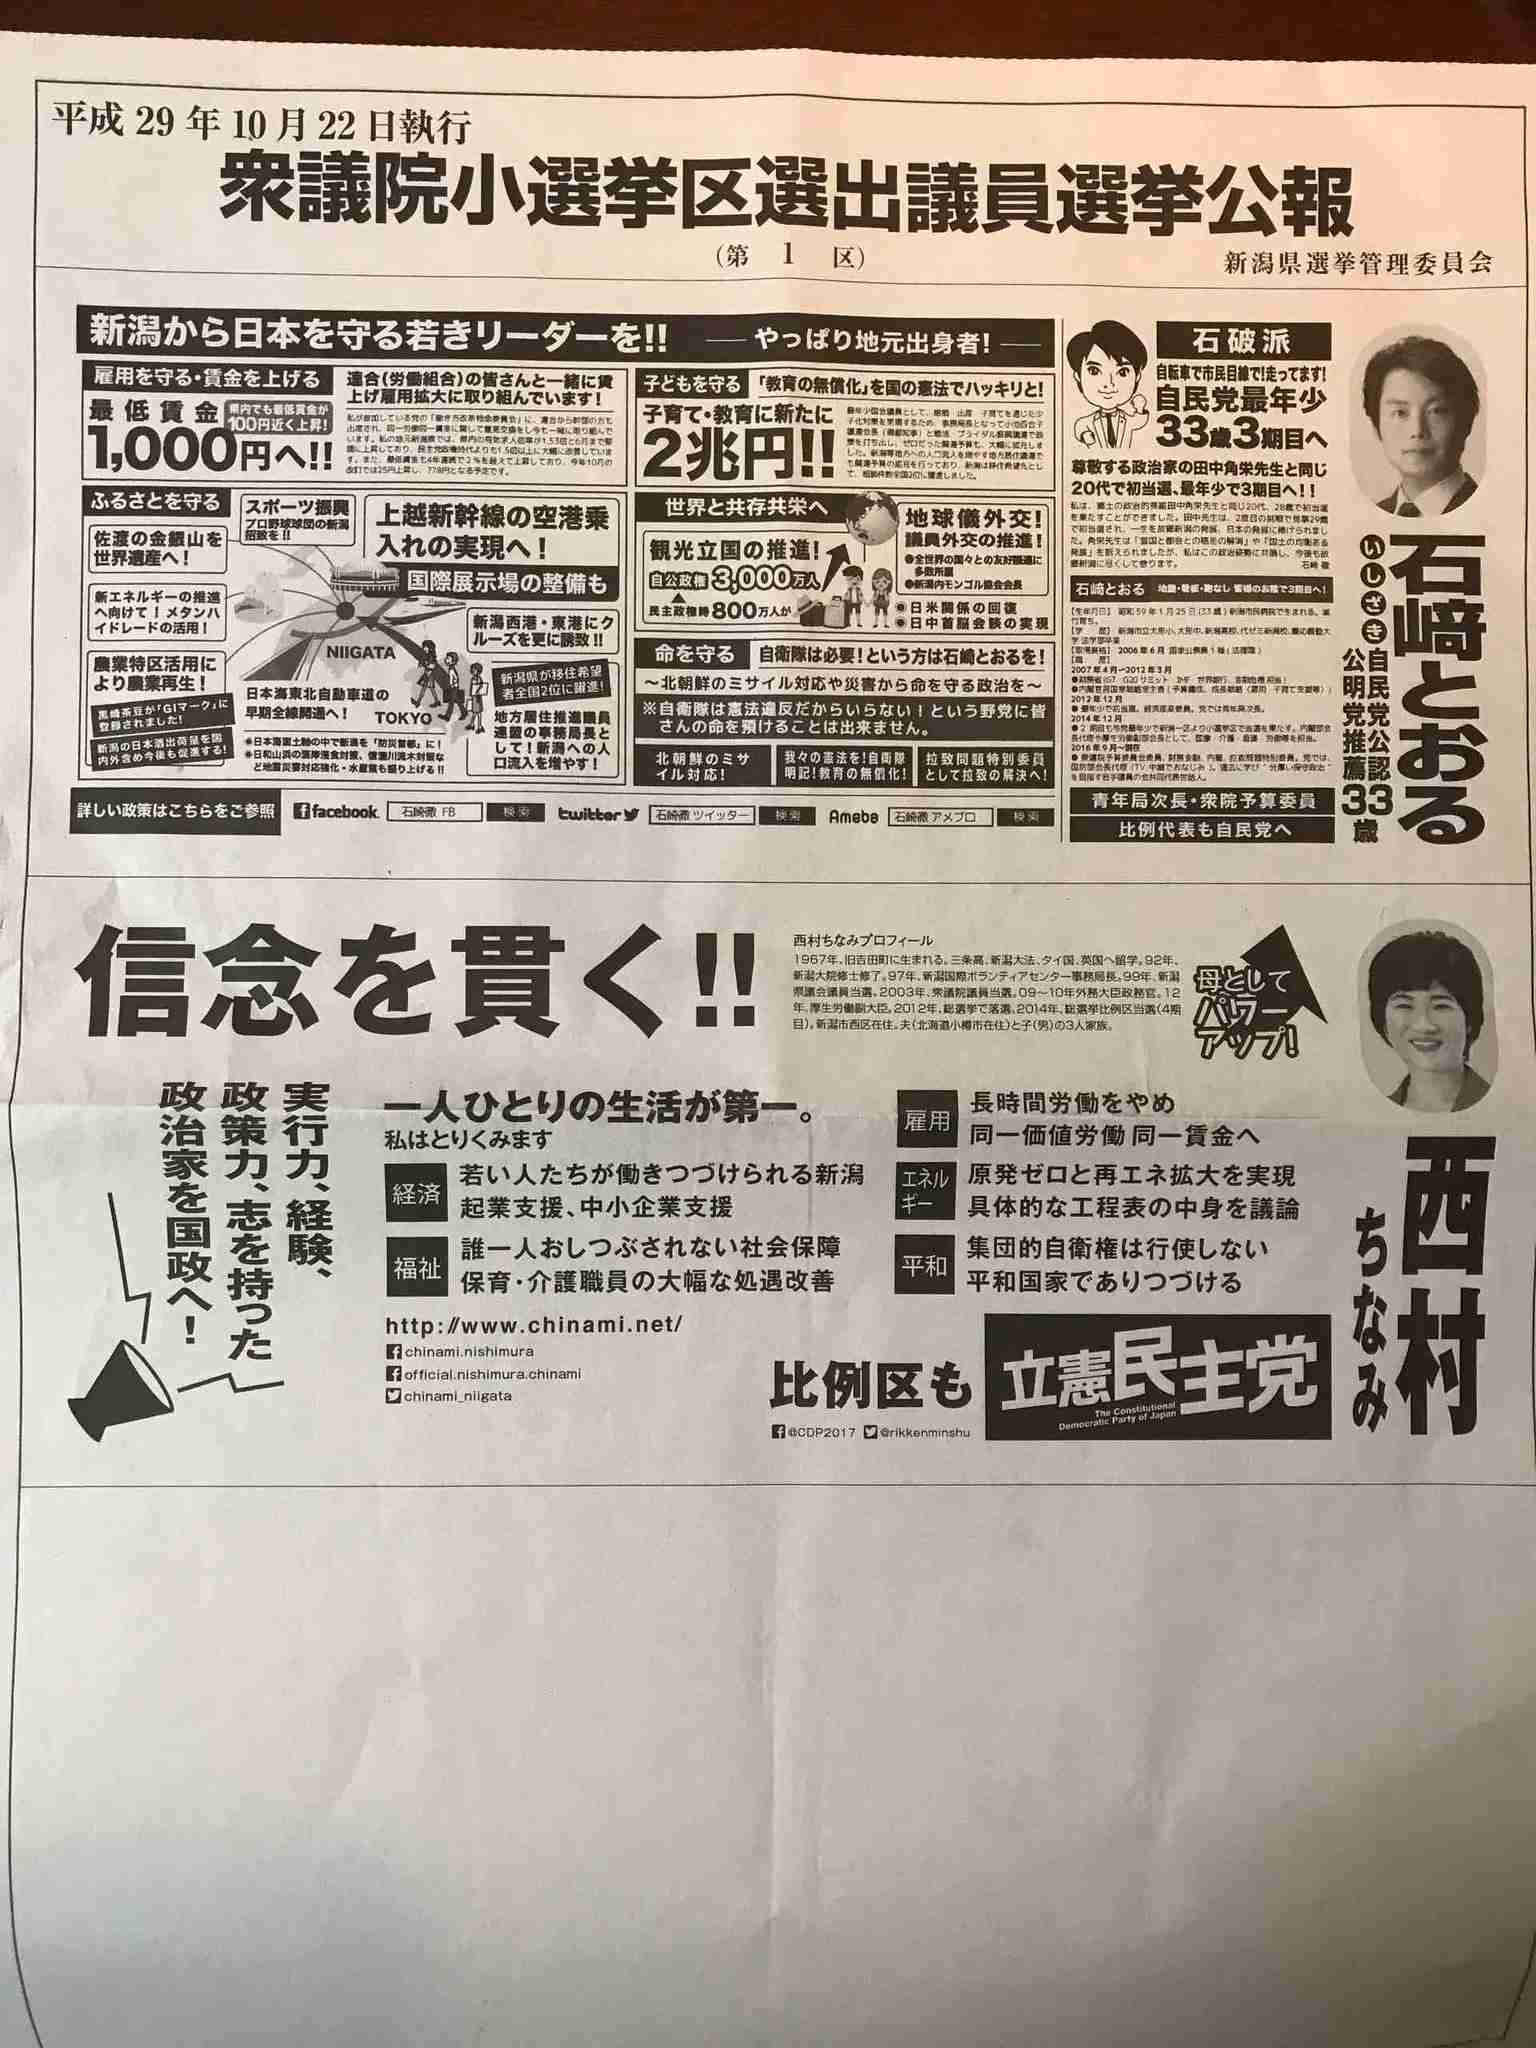 平成29年10月22日執行
衆議院小選挙区選出議員選挙公報
（第 1 区）
新潟県選挙管理委員会
新潟から日本を守る若きリーダーを!! ―やっぱり地元出身者!―
雇用を守る・賃金を上げる
連合(労働組合)の皆さんと一緒に賃
上げ雇用拡大に取り組んでいます!
最低賃金
県内でも最低賃金が
100円近く上昇!
1,000円へ!!
子どもを守る
「教育の無償化」を国の憲法でハッキリと!
子育て・教育に新たに
2兆円!!
ふるさとを守る
スポーツ振興
プロ野球球団の新潟
招致を!!
佐渡の金銀山を
世界遺産へ!
上越新幹線の空港乗
入れの実現へ!
国際展示場の整備も
新エネルギーの推進
へ向けて!メタンハ
イドレードの活用!
新潟西港・東港にク
ルーズを更に誘致!!
NIIGATA
農業特区活用に
より農業再生!
新潟県が移住希望
者全国2位に躍進!
黒崎茶豆が「GIマーク」に
登録されました!
新潟の日本酒出荷量を国
内外含め今後も促進する!
日本海東北自動車道の
早期全線開通へ!
TOKYO
地方居住推進議員
連盟の事務局長と
して!新潟への人
口流入を増やす!
※日本海国土軸の中で新潟を「防災首都」に!
世界と共存共栄へ
地球儀外交!
議員外交の推進!
観光立国の推進!
自公政権 3,000万人
民主政権時 800万人が
●全世界の国々との友好議連に
多数所属
●新潟内モンゴル協会会長
●日米関係の回復
●日中首脳会談の実現
命を守る
自衛隊は必要!という方は石﨑とおるを!
〜北朝鮮のミサイル対応や災害から命を守る政治を〜
※自衛隊は憲法違反だからいらない!という野党に皆
さんの命を預けることは出来ません。
北朝鮮のミサ
イル対応!
我々の憲法を!自衛隊
明記!教育の無償化!
拉致問題特別委員
として拉致の解決へ!
詳しい政策はこちらをご参照
facebook. 石﨑徹 FB 検索 twitter 石﨑徹 ツイッター 検索 Ameba 石﨑徹 アメブロ 検索
石破派
自転車で市民目線で!走ってます!
自民党最年少
33歳3期目へ
尊敬する政治家の田中角栄先生と同じ
20代で初当選、最年少で3期目へ!!
石﨑とおる 地盤・看板・鞄なし 皆様のお陰で3期目へ!
青年局次長・衆院予算委員
比例代表も自民党へ
石﨑とおる
いしざき
自民党公認
公明党推薦
33歳
信念を貫く!!
西村ちなみプロフィール
1967年、旧吉田町に生まれる。三条高、新潟大法、タイ国、英国へ留学。92年、
新潟大院修士修了。97年、新潟国際ボランティアセンター事務局長。99年、新潟
県議会議員当選。2003年、衆議院議員当選。09〜10年外務大臣政務官。12
年、厚生労働副大臣。2012年、総選挙で落選。2014年、総選挙比例区当選(4期
目)。新潟市西区在住。夫(北海道小樽市在住)と子(男)の3人家族。
母として
パワー
アップ!
西村ちなみ
実行力、経験、
政策力、志を持った
政治家を国政へ!
一人ひとりの生活が第一。
私はとりくみます
経済
若い人たちが働きつづけられる新潟
起業支援、中小企業支援
福祉
誰一人おしつぶされない社会保障
保育・介護職員の大幅な処遇改善
雇用
長時間労働をやめ
同一価値労働 同一賃金へ
エネルギー
原発ゼロと再エネ拡大を実現
具体的な工程表の中身を議論
平和
集団的自衛権は行使しない
平和国家でありつづける
http://www.chinami.net/
chinami.nishimura
official.nishimura.chinami
chinami_niigata
比例区も
立憲民主党
The Constitutional
Democratic Party of Japan
@CDP2017 @rikkenminshu